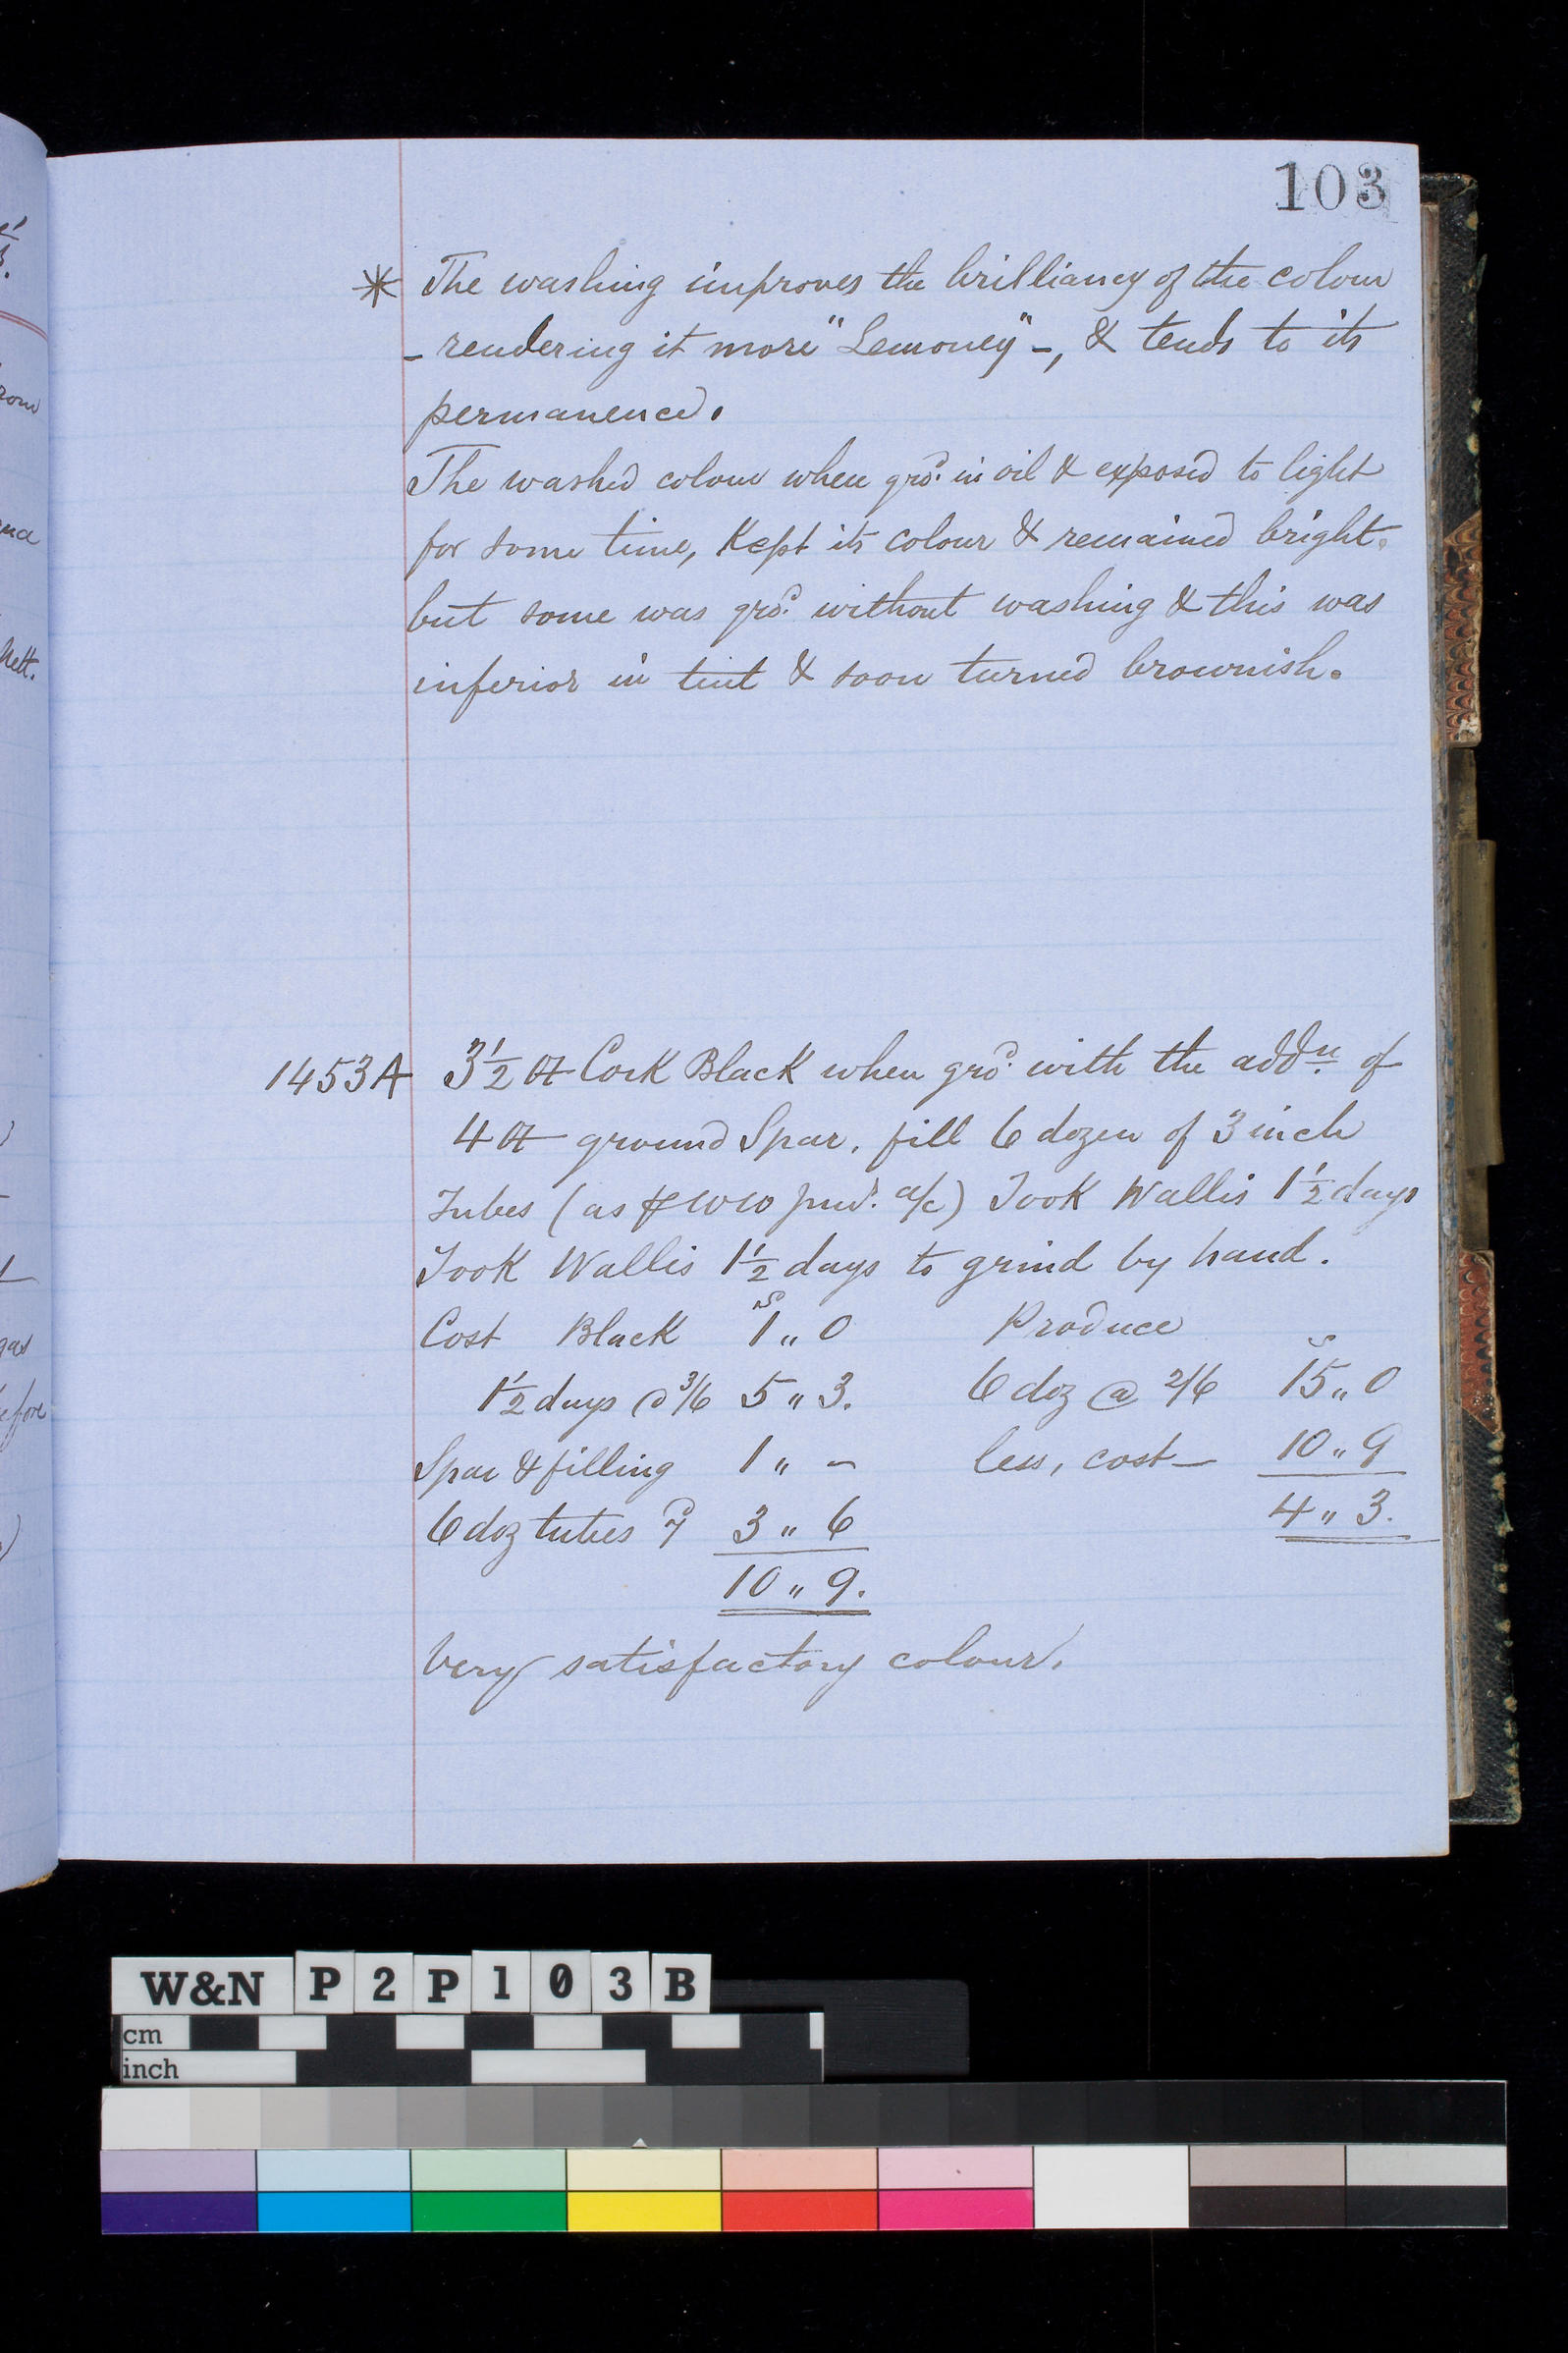 103
* The washing improves the brilliancy of the colour
- rendering it more "Lemoney" -, & tends to its
permanence.
The washed colour when grd. in oil & exposed to light
for some time, Kept its colour & remained bright.
but some was grd. without washing & this was
inferior in tint & soon turned brownish.
1453A 3½ ℔ Cork Black when grd. with the addn. of
4 ℔ ground Spar, fill 6 dozen of 3 inch
Tubes (as ⅌ WW a/c) Took Wallis 1½ days
Took Wallis 1½ days to grind by hand.
Cost Black 1 s " 0 Produce
1½ days @ 3/6 5 " 3. 6 doz @ 2/6 15 s " 0
Spar & filling 1 " - less, cost - 10 " 9
6 doz tubes 7d 3 " 6 4 " 3.
10 " 9.
Very satisfactory colour.
W&N P2P103B
cm
inch